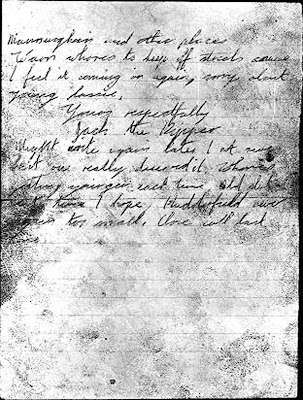 Manningham and other places
Warn whores to keep off streets cause
I feel it coming on again, sorry about
young lassie.
Yours respectfully
Jack the Ripper
Might write again later I not sure
last one really deserved it. Whores
getting younger each time. Old slut
next time I hope. Huddersfield never
again too small. Close call last